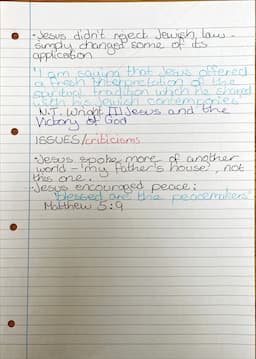 · Jesus didn't reject Jewish law -
simply changed some of its
application
"I am saying that Jesus offered
a fresh interpretation of the
spiritual tradition which he shared
with his Jewish contemporaries"
N.T. Wright [1] Jesus and the
Victory of God
ISSUES/criticisms
· Jesus spoke more of another
world - 'my Father's house', not
this one.
· Jesus encouraged peace:
"Blessed are the peacemakers"
Matthew 5:9